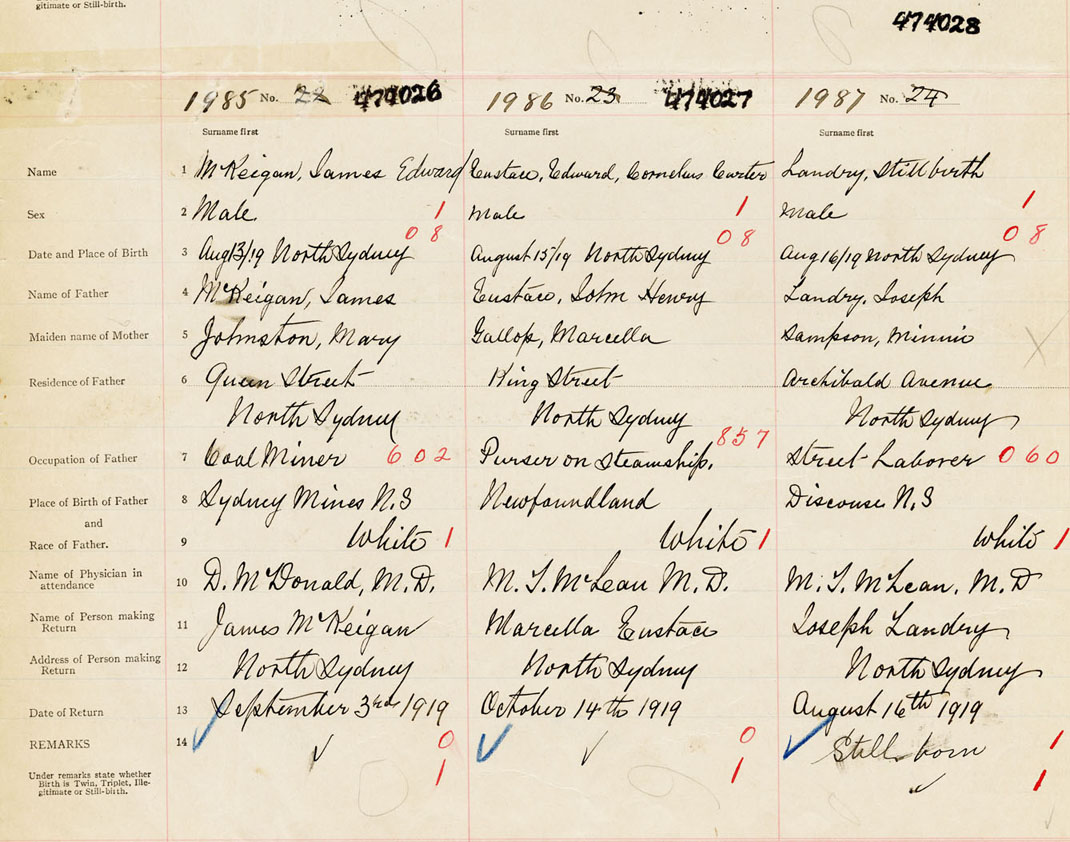 gitimate or Still-birth.
474028
1985 No. 22 474026 1986 No. 23 474027 1987 No. 24
Surname first Surname first Surname first
Name 1 McKeigan, James Edward Eustace, Edward, Cornelius Carter Landry, Stillbirth
Sex 2 Male 1 Male 1 Male 1
08 08 08
Date and Place of Birth 3 Aug 13/19 North Sydney August 15/19 North Sydney Aug 16/19 North Sydney
Name of Father 4 McKeigan, James Eustace, John Henry Landry, Joseph
Maiden name of Mother 5 Johnston, Mary Gallop, Marcella Sampson, Minnie
Residence of Father 6 Queen Street King Street Archibald Avenue
North Sydney North Sydney North Sydney
Occupation of Father 7 Coal Miner 602 Purser on Steamship. 857 Street Laborer 060
Place of Birth of Father 8 Sydney Mines N.S Newfoundland Discouse N.S
and
Race of Father. 9 White 1 White 1 White 1
Name of Physician in
attendance 10 D. McDonald, M.D. M. T. McLean M.D. M. T. McLean, M.D
Name of Person making
Return 11 James McKeigan Marcella Eustace Joseph Landry
Address of Person making
Return 12 North Sydney North Sydney North Sydney
Date of Return 13 September 3rd 1919 October 14th 1919 August 16th 1919
REMARKS 14 0 0 Still born 1
Under remarks state whether
Birth is Twin, Triplet, Ille-
gitimate or Still-birth. 1 1 1